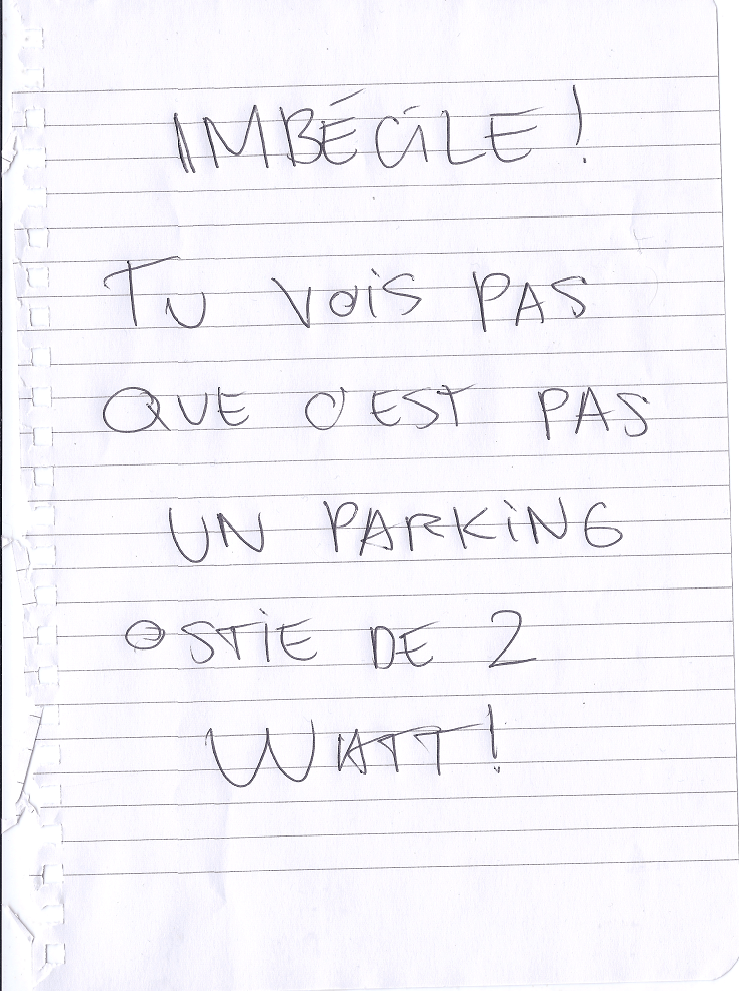 IMBÉCILE!
TU VOIS PAS
QUE C'EST PAS
UN PARKING
OSTIE DE 2
WATT!